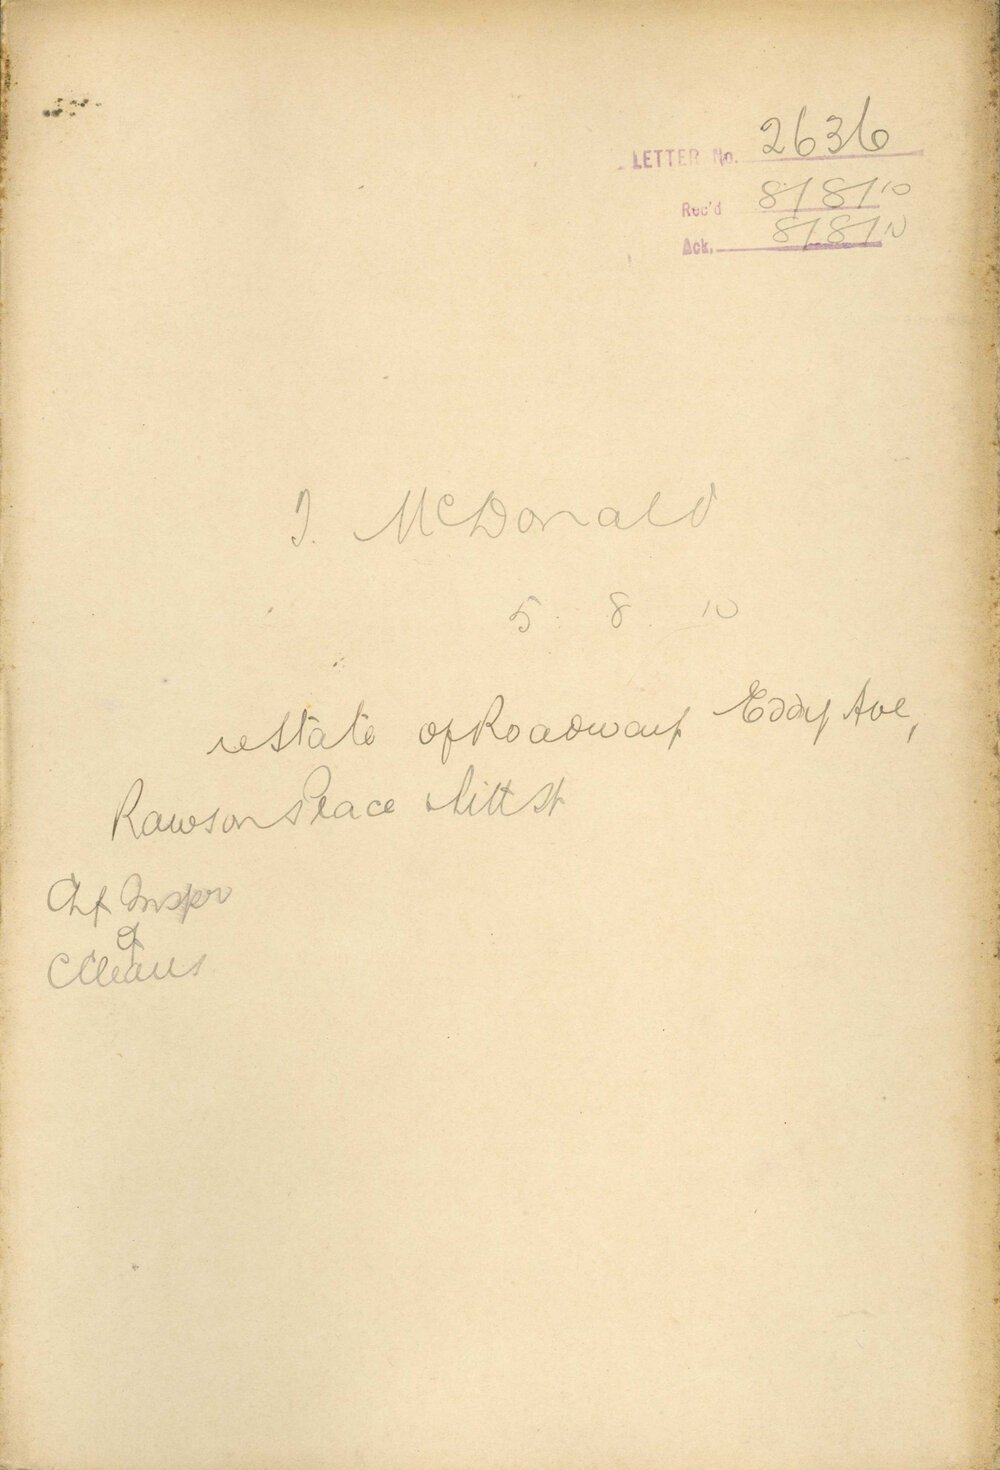 LETTER No. 2636
Rec'd 8/8/10
Ack. 8/8/10
J. McDonald
5. 8. 10
re State of Roadway Eddy Ave,
Rawson Place & Pitt St
Chf Inspr
of
Cleans